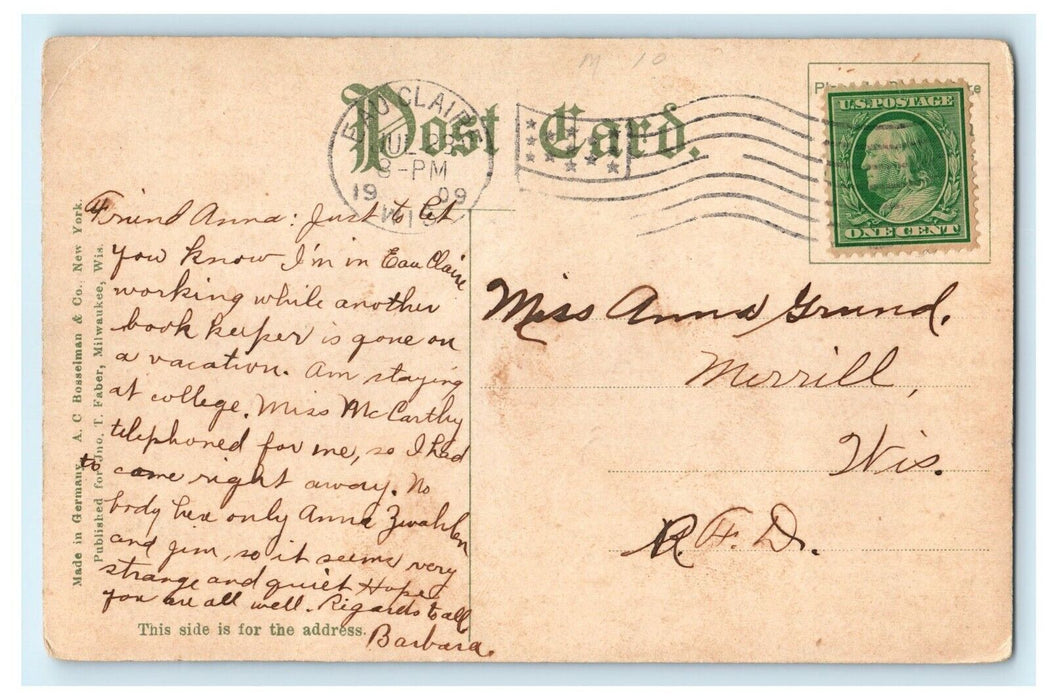 M 10
Post Card.
EAU CLAIRE
JUL 28
8-PM
19 09
WIS
U.S. POSTAGE
ONE CENT
Friend Anna: Just to let
you know I'm in Eau Claire
working while another
book keeper is gone on
a vacation. Am staying
at college. Miss McCarthy
telephoned for me, so I had
to come right away. No
body here only Anna Zwahlen
and Jim, so it seems very
strange and quiet Hope
you are all well. Regards to all
Barbara.
Miss Anna Grund,
Merrill,
Wis.
R.F.D.
Made in Germany. A. C Bosselman & Co. New York.
Published for Jno. T. Faber, Milwaukee, Wis.
This side is for the address.